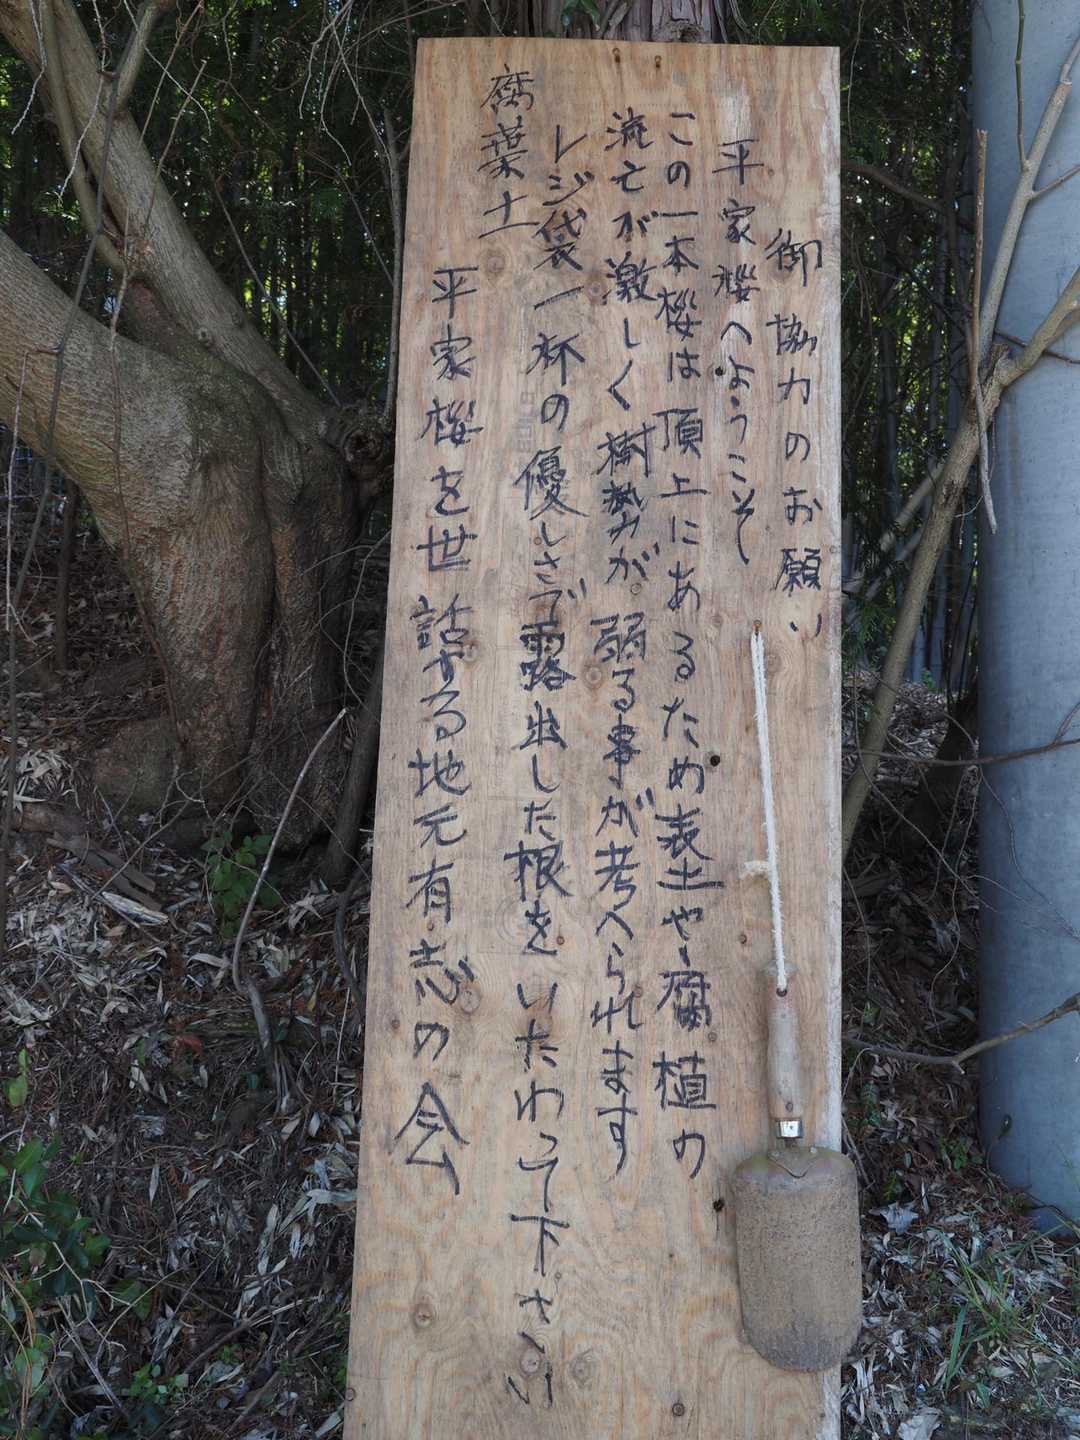 御協力のお願い
平家桜へようこそ
この一本桜は頂上にあるため表土や腐植の
流亡が激しく樹勢が弱る事が考へられます
レジ袋一杯の優しさで露出した根をいたわって下さい
腐葉土
平家桜を世話する地元有志の会